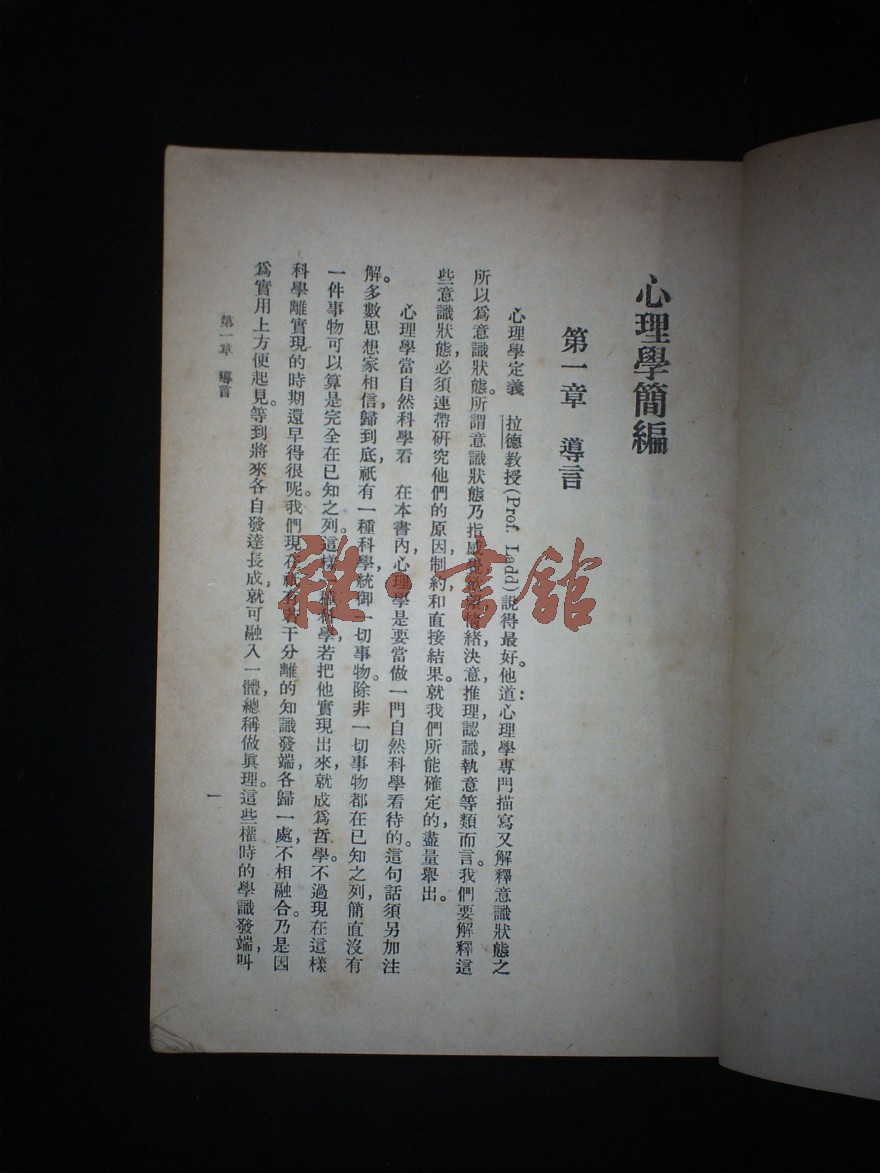 心理學簡編
第一章 導言
心理學定義 拉德教授(Prof. Ladd)說得最好。他道：心理學專門描寫又解釋意識狀態之
所以爲意識狀態。所謂意識狀態乃指感覺欲望情緒，決意，推理，認識，執意等類而言。我們要解釋這
些意識狀態，必須連帶硏究他們的原因，制約，和直接結果。就我們所能確定的，盡量舉出。
心理學當自然科學看 在本書內，心理學是要當做一門自然科學看待的。這句話須另加注
解。多數思想家相信，歸到底祇有一種科學統御一切事物。除非一切事物都在已知之列，簡直沒有
一件事物可以算是完全在已知之列。這樣一種科學，若把他實現出來，就成爲哲學。不過現在這樣
科學離實現的時期還早得很呢。我們現在祇有若干分離的知識發端，各歸一處，不相融合。乃是因
爲實用上方便起見。等到將來各自發達長成，就可融入一體，總稱做眞理。這些權時的學識發端，叫
第一章 導言
一
雜·書館